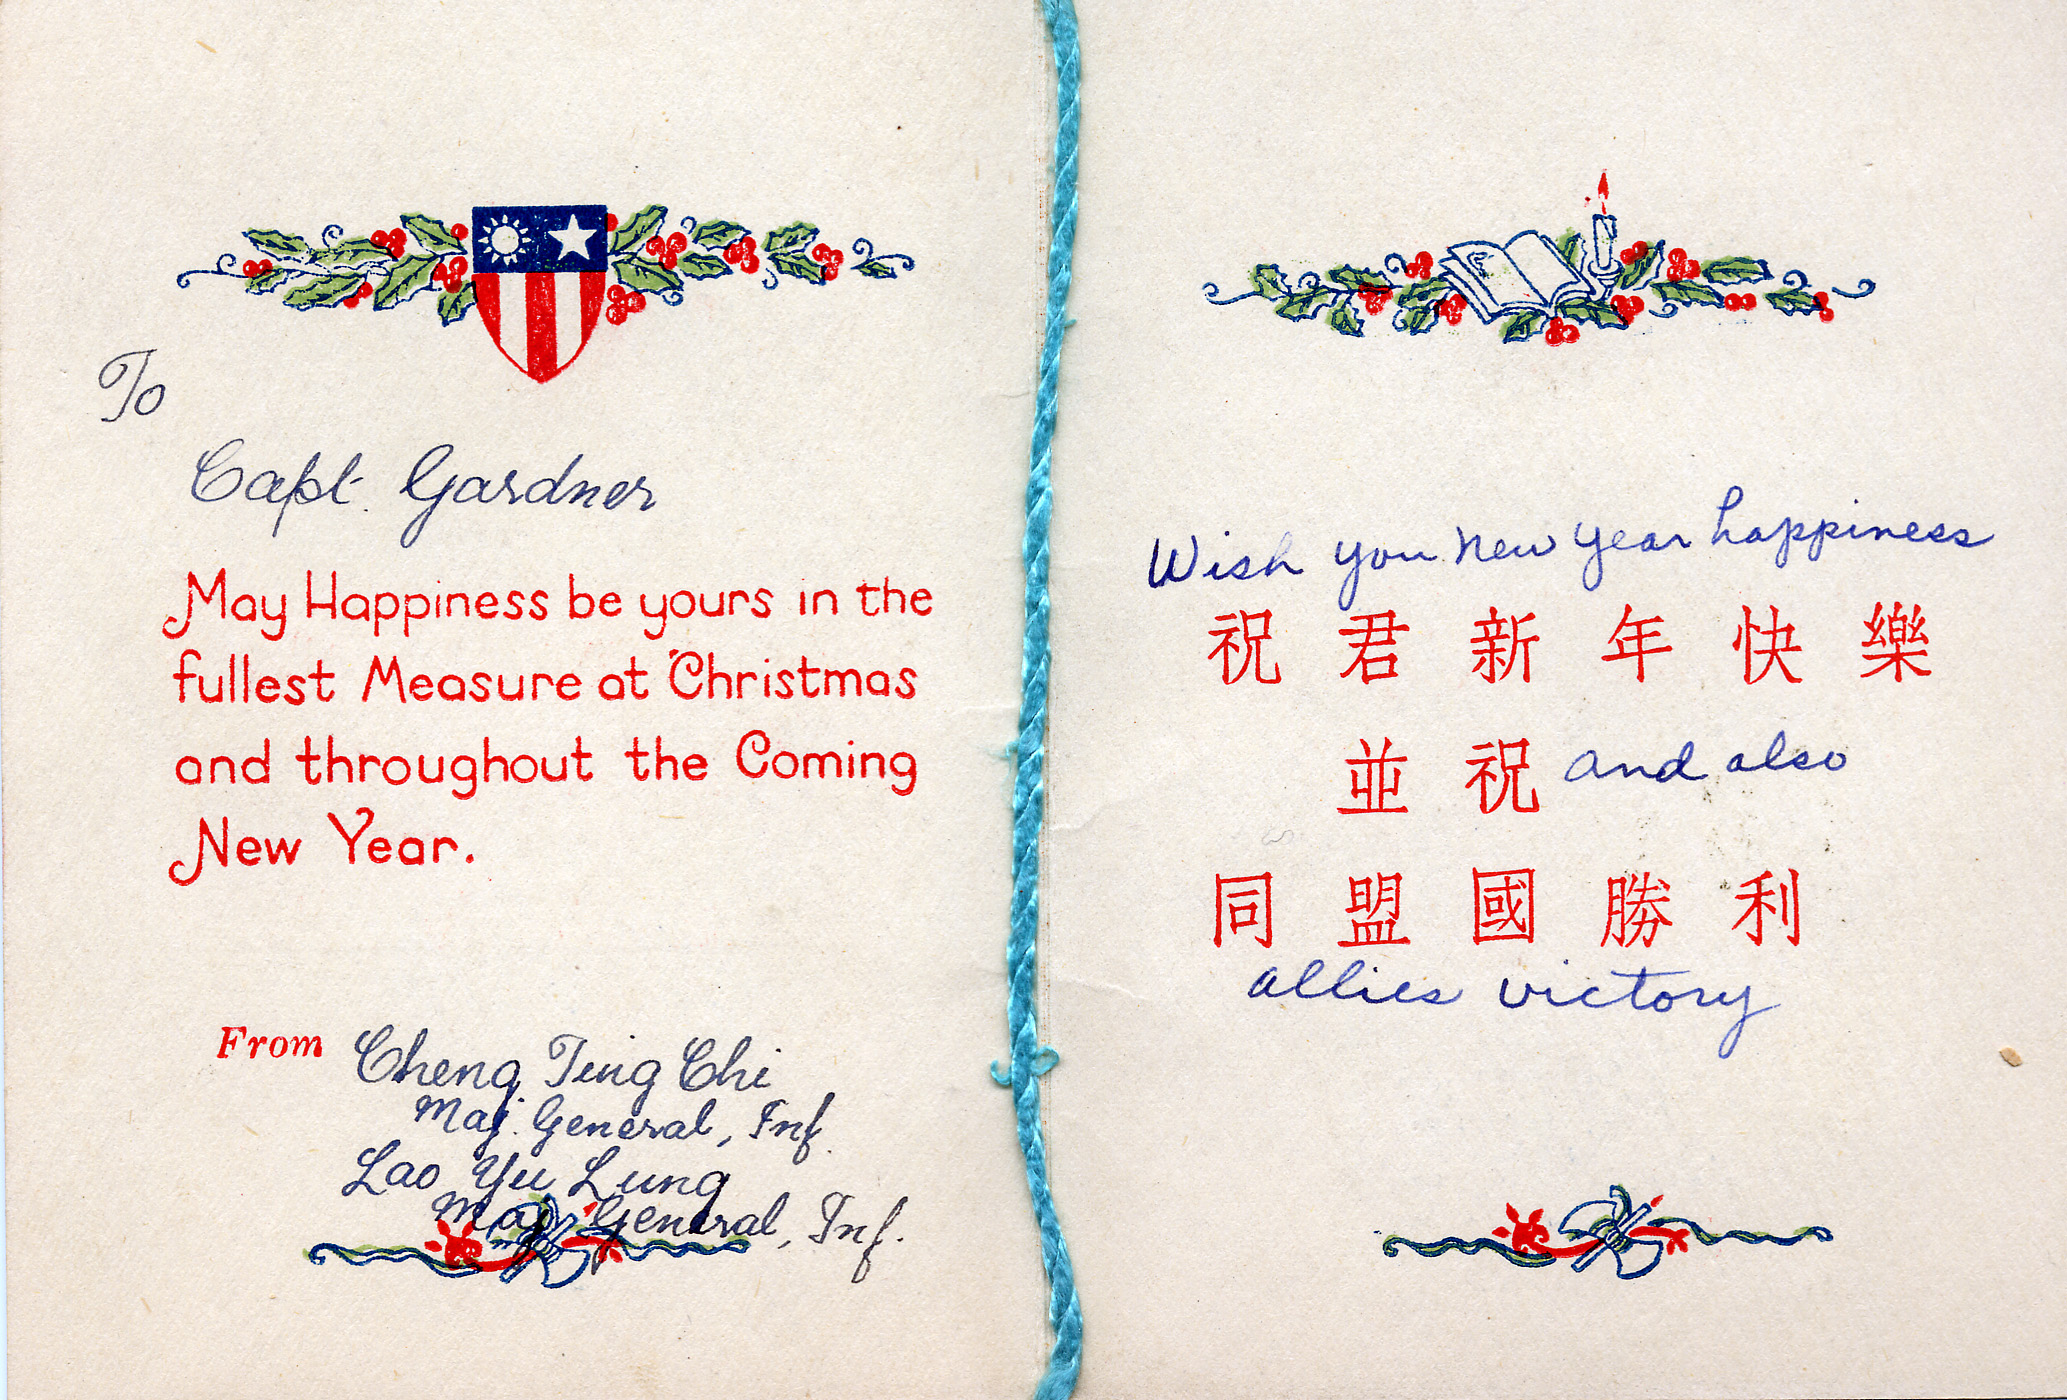 To
Capt. Gardner
May Happiness be yours in the
fullest Measure at Christmas
and throughout the Coming
New Year.
From Cheng Ting Chi
Maj. General, Inf.
Lao Yu Lung
Maj General, Inf.
Wish you new year happiness
祝君新年快樂
並祝 and also
同盟國勝利
allies victory